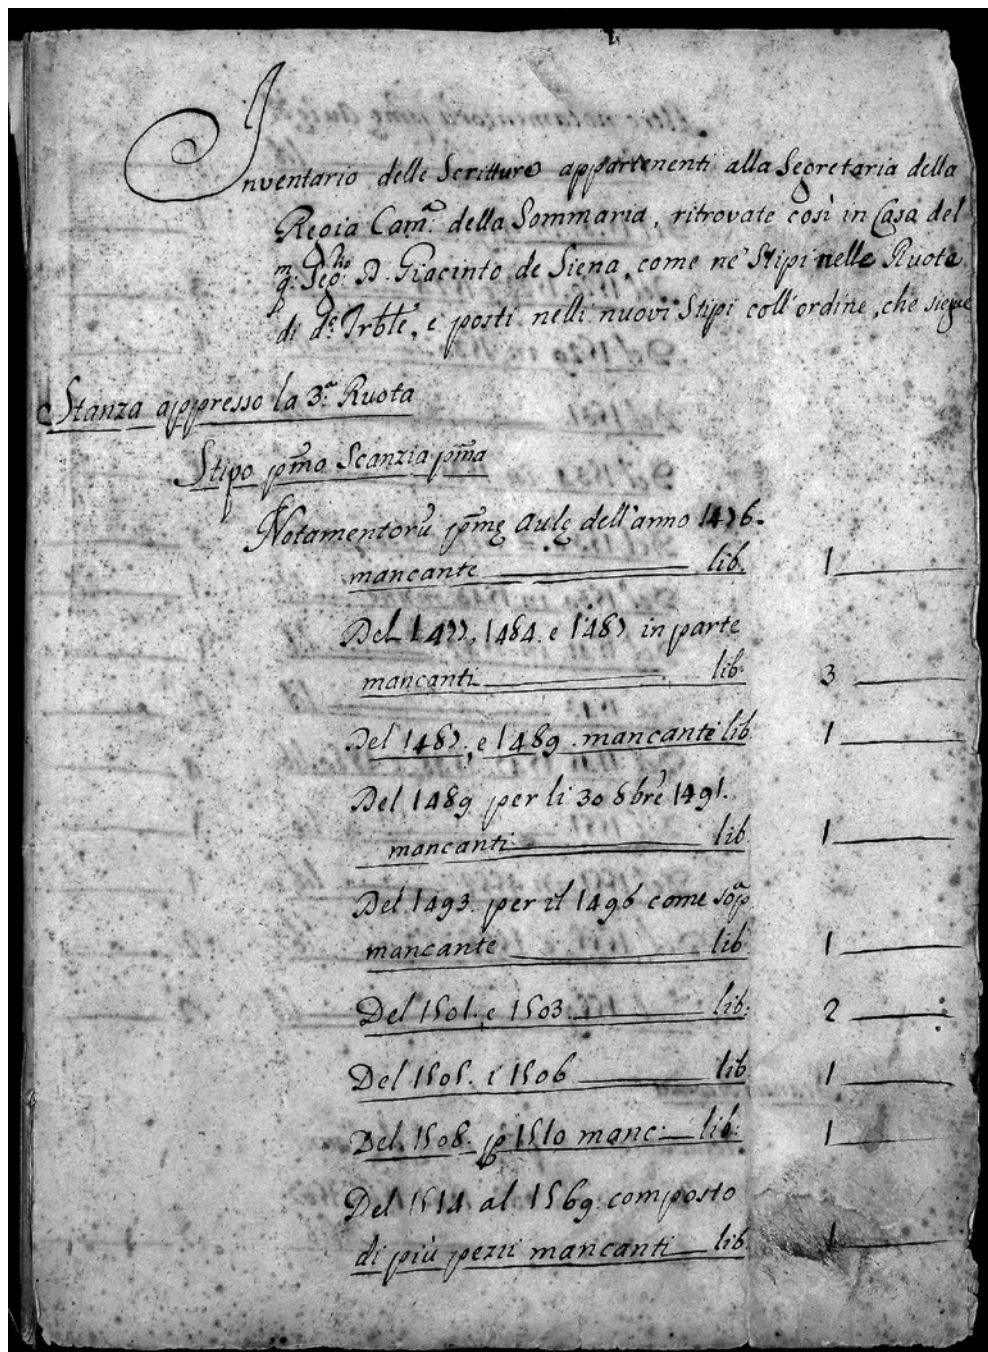 Inventario delle Scritture appartenenti alla Segretaria della
Regia Camª. della Sommaria, ritrovate così in Casa del
qm. Segrio. D. Giacinto de Siena, come ne' Stipi nelle Ruote
di do. Trble, e posti nelli nuovi Stipi coll'ordine, che siegue
Stanza appresso la 3ª. Ruota
Stipo pmo Scanzia pma
Notamentorũ pme Aule dell'anno 1476.
mancante lib. 1
Del 1477, 1484. e 1487 in parte
mancanti lib. 3
Del 1487., e 1489. mancante lib 1
Del 1489 per li 30 8bre 1491.
mancanti lib. 1
Del 1493. per il 1496 come soPª
mancante lib 1
Del 1501. e 1503. lib. 2
Del 1505. e 1506 lib 1
Del 1508. p 1510 manc: lib: 1
Del 1514 al 1569 composto
di più pezzi mancanti lib 1